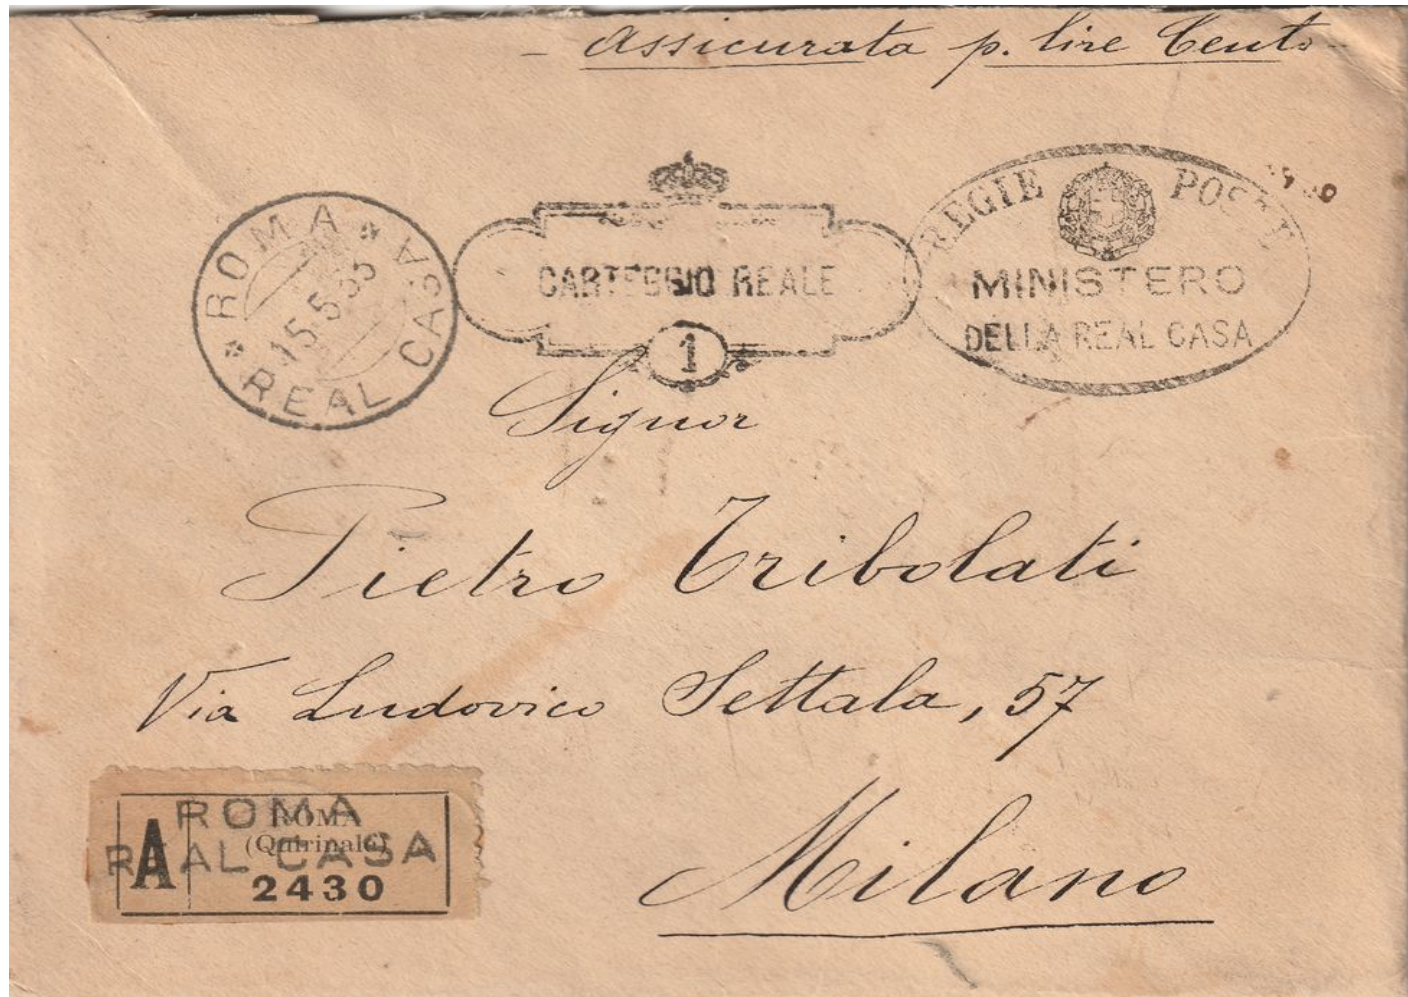 - Assicurata p. lire Cento -
ROMA
REAL CASA
15.5.35
CARTEGGIO REALE
1
REGIE POSTE
MINISTERO
DELLA REAL CASA
Signor
Pietro Tribolati
Via Ludovico Settala, 57
Milano
ROMA
REAL CASA
A
ROMA
(Quirinale)
2430